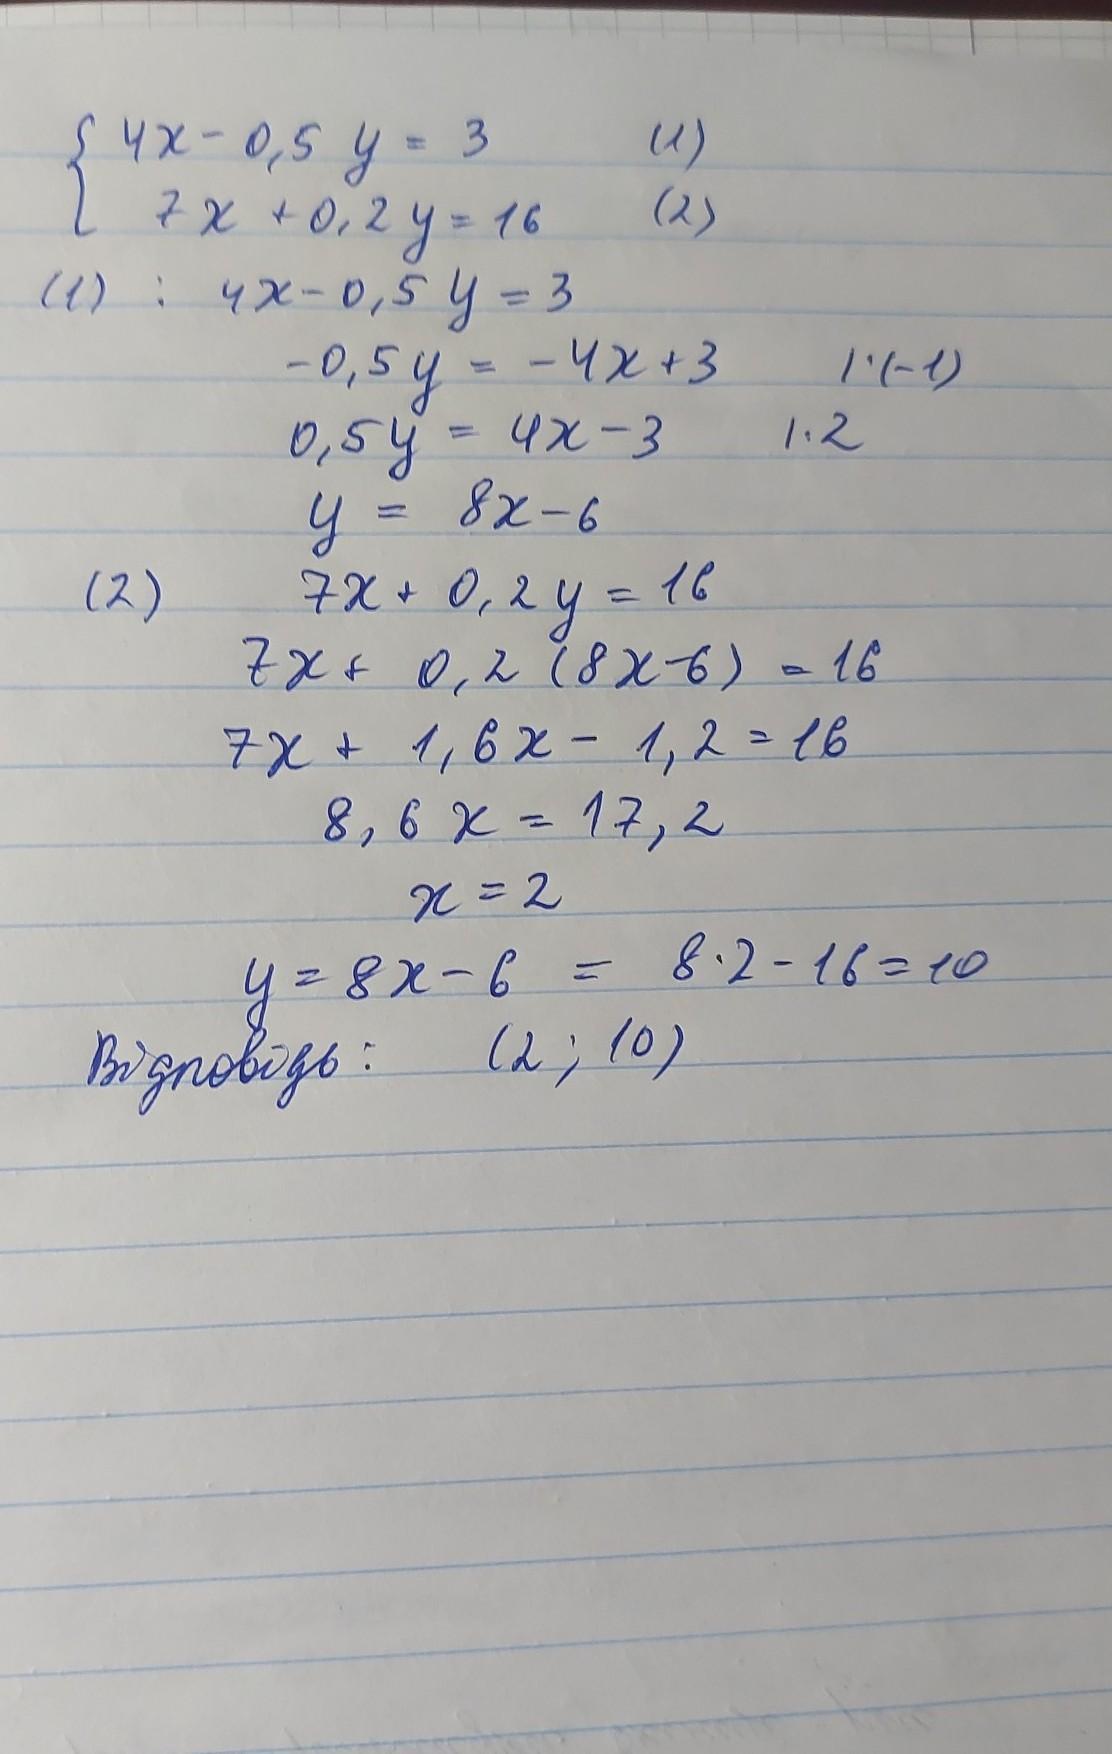 { 4x - 0,5y = 3 (1)
7x + 0,2y = 16 (2)
(1) : 4x - 0,5y = 3
-0,5y = -4x + 3 |·(-1)
0,5y = 4x - 3 |·2
y = 8x - 6
(2) 7x + 0,2y = 16
7x + 0,2(8x - 6) = 16
7x + 1,6x - 1,2 = 16
8,6x = 17,2
x = 2
y = 8x - 6 = 8·2 - 16 = 10
Відповідь: (2; 10)